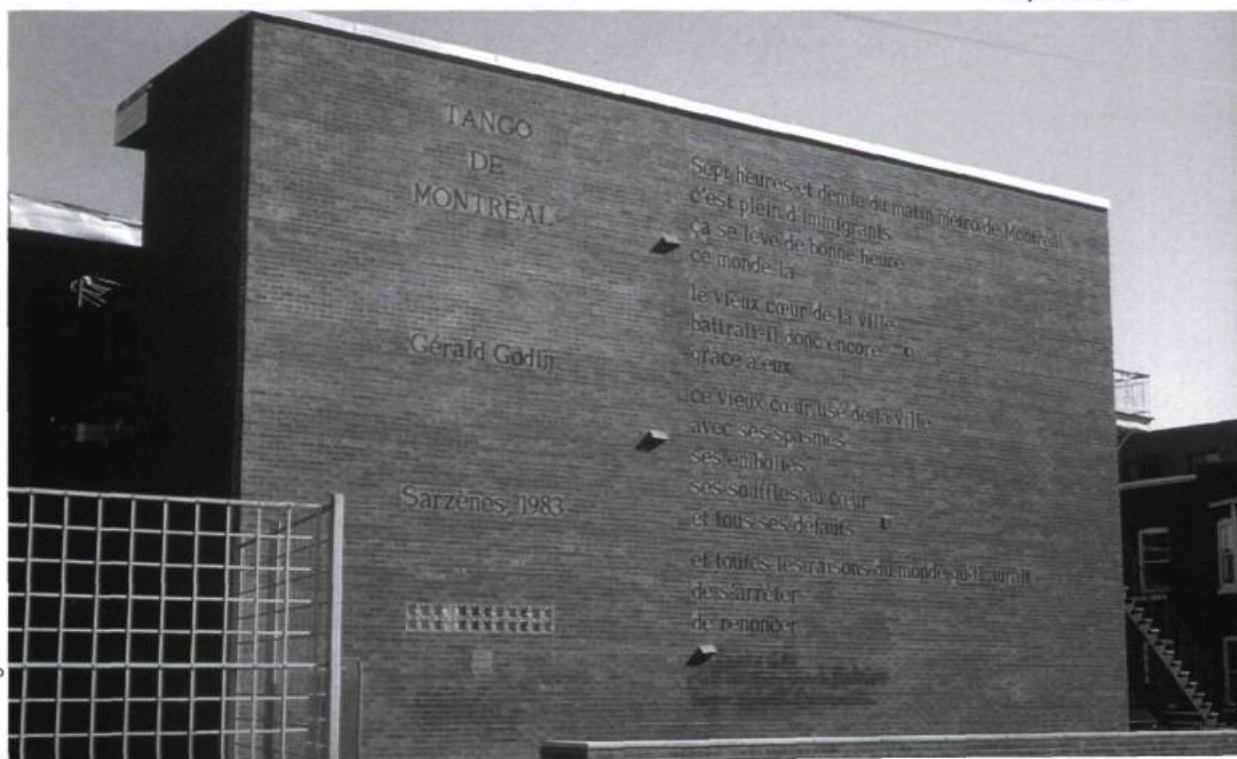 TANGO
DE
MONTRÉAL
Gérald Godin
Sarzènes, 1983
Sept heures et demie du matin métro de Montréal
c'est plein d'immigrants
ça se lève de bonne heure
ce monde-là
le vieux cœur de la ville
battrait-il donc encore
grâce à eux
ce vieux cœur usé de la ville
avec ses spasmes
ses embolies
ses souffles au cœur
et tous ses défauts
et toutes les raisons du monde qu'il aurait
de s'arrêter
de renoncer